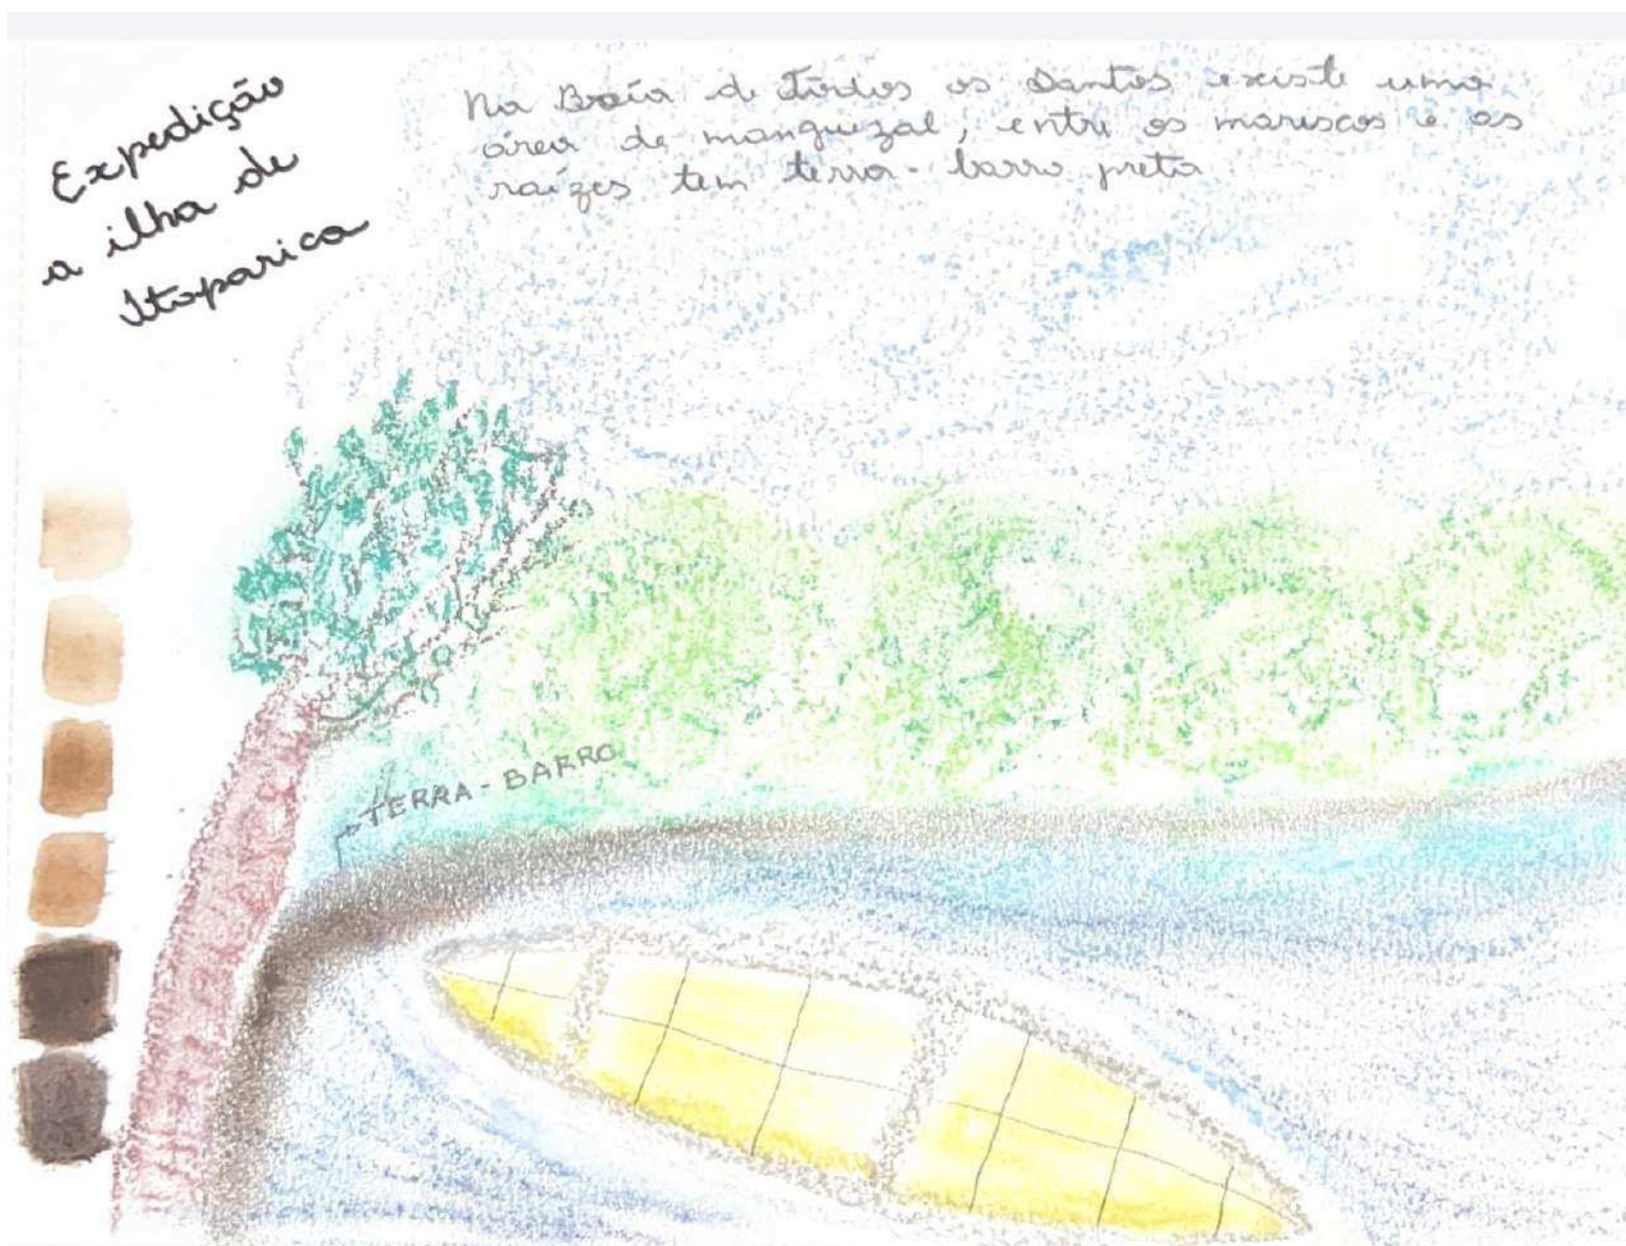 Expedição
a ilha de
Itaparica
Na Baía de Todos os Santos existe uma
área de manguezal, entre os mariscos e as
raízes tem terra-barro preta
TERRA-BARRO